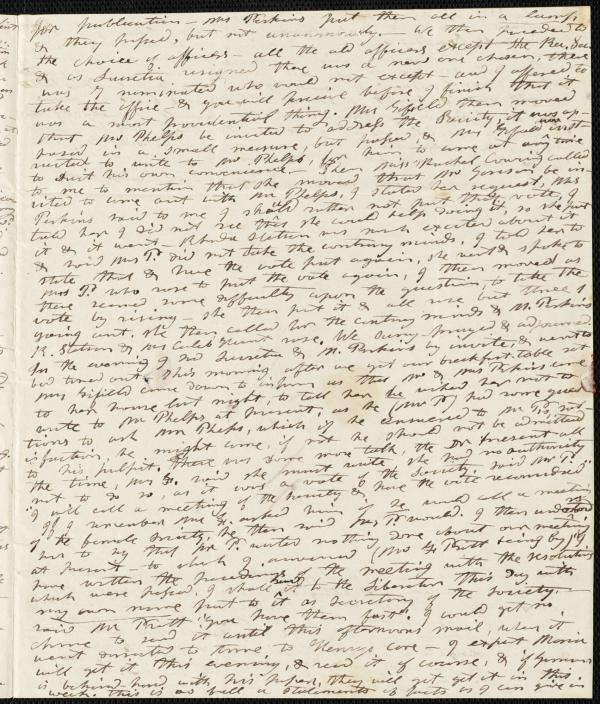 for publication – Mrs Perkins put them all in a lump,
& they passed, but not unanimously. – We then proceeded to
the choice of officers – all the old officers except the Rec. Sec
& as Lucretia resigned there was a new one chosen, there
was 7 nominated who would not except – and I offered to
take the office & you will perceive before I finish that it
was a most providential thing. Mrs Fifield then moved
that Mr Phelps be invited to address the Society, it was op-
posed in a small measure, but passed, & Mrs Fifield was inst-
ructed to write to Mr Phelps, for him to come at any time
to suit his own convenience – Then Miss Rachel Cowing called
to me to mention that she moved that Mr Garrison be in-
vited to come out with Mr Phelps, I stated her request, Mrs
Perkins said to me I should rather not put that vote, I
told her I did not see that she could help doing it, so she put
it & it went – Rhoda Stetson was much excited about it
& said Mrs P. did not take the contrary minds, I told her to
state that & have the vote put again, she went & spoke to
Mrs P. who rose to put the vote again, I then moved as
there seemed some difficulty upon the question, to take the
vote by rising – she then put it & all rose but three &
going out, she then called for the contrary minds & M. Perkins
R. Stetson & Mrs Caleb Hunt rose. We sung – prayed & adjourned
In the evening I and Lucretia & M. Perkins by invite, & went to
bed tired out. This morning after we got our breakfast table set
Mrs Fifield came down to inform us that Mr & Mrs Perkins came
to her house last night, to tell her he wished her not to
write to Mr Phelps at present, as he (Mr P) had some ques
tions to ask Mr Phelps, which if he answered to Mr P's sat-
isfaction, he might come, if not he should not be admitted
to his pulpit. There was some more talk, the Dr present all
the time, Mrs F. said she must write, she had no authority
not to do so, as it was a vote of the Society. said Mr P.
"I will call a meeting of the Society & have the vote reconsidered"
If I remember Mrs F. asked him if he could call a meeting
of the female Society, he then said Mrs P. would. I then
her to say that Mr P. wanted nothing done about our meeting
at present – to which I answered (Mr G Pratt being by) I
have written the proceedings of the meeting with the resolutions
which were passed, I shall send it to the Liberator this day with
my own name put to it as secretary of the Society. –
said Mr Pratt "you have them fast". I could get no
chance to send it until this afternoons mail, when it
went directed to to Henrys care – I expect Maria
will get it this evening, & read it of course, & if Garrison
is behind hand with his paper, they will get it in this
week. this is as full a statement of facts as I can give in